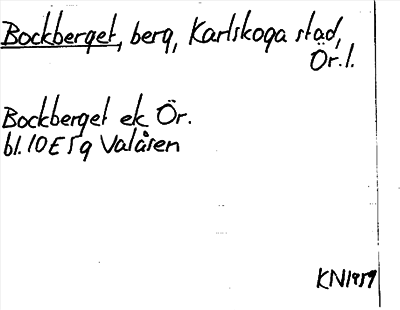 Bockberget, berg, Karlskoga stad,
Ör.l.
Bockberget ek Ör.
bl. 10E5g Valåsen
KN1959